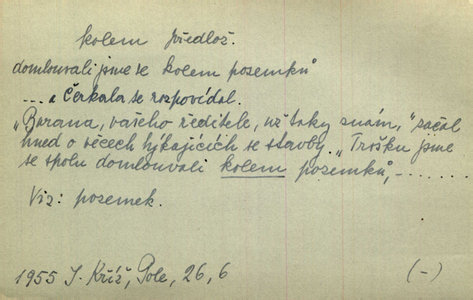 kolem předlož.
domlouvali jsme se kolem pozemků
... a Čerkala se rozpovídal.
„Berana, vašeho ředitele, už taky znám,“ začal
hned o věcech týkajících se stavby. „Trošku jsme
se spolu domlouvali kolem pozemků, – . . . . . . .
Viz: pozemek.
1955 J. Kříž, Pole, 26, 6 (–)